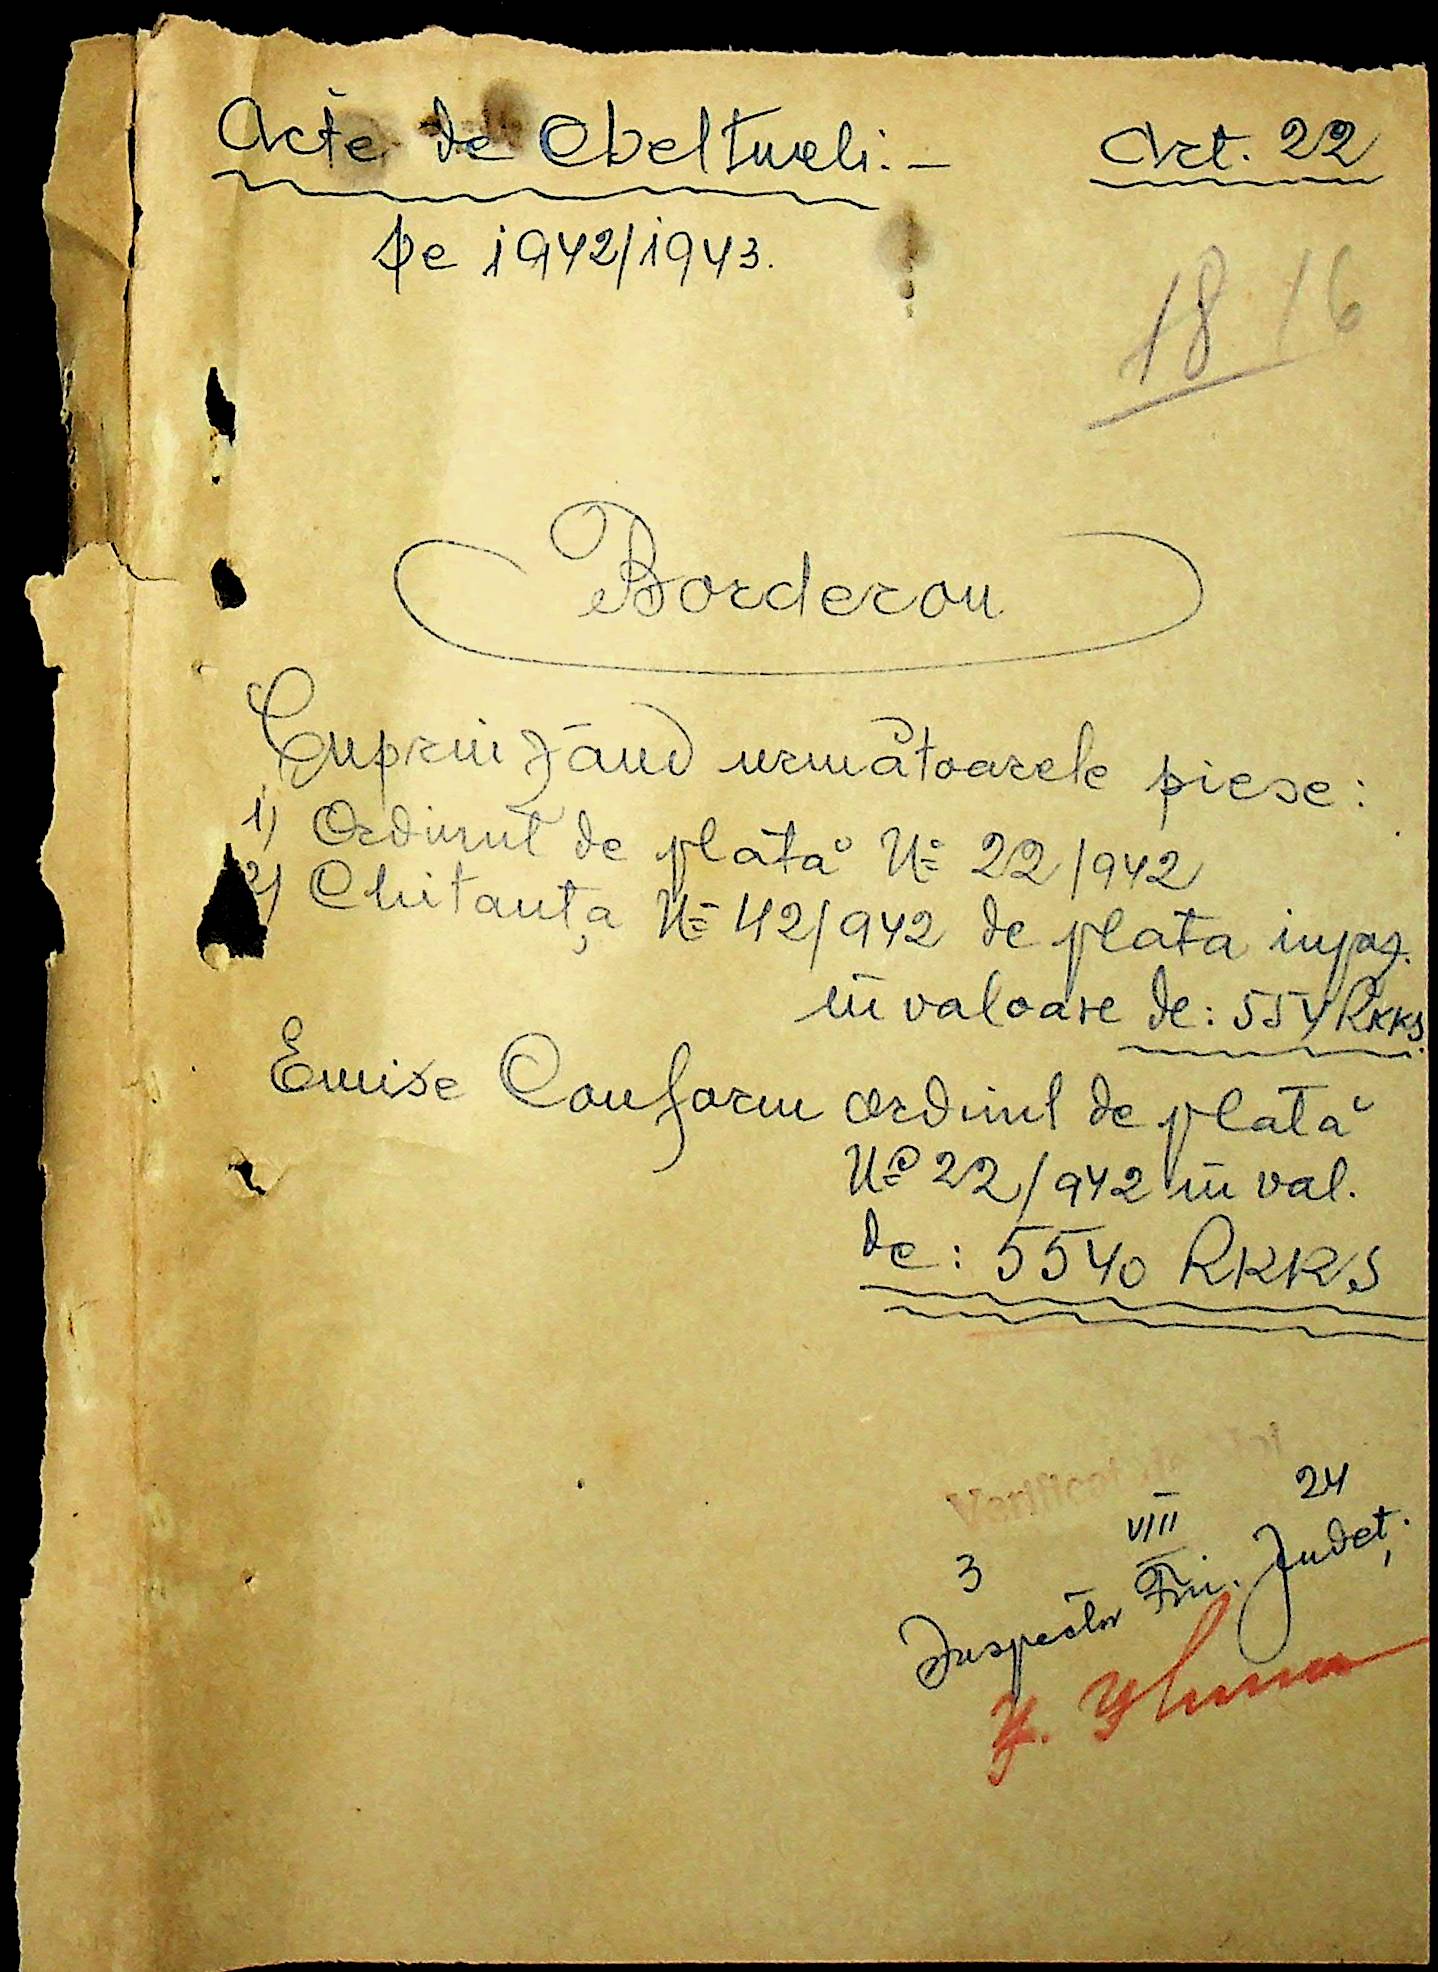 Acte de Cheltueli.- Art. 22
pe 1942/1943.
18 16
Borderou
Cuprinzând următoarele piese:
1) Ordinul de plată No 22/942
2) Chitanța No 42/942 de plata
în valoare de: 554 RKKS.
Emise Conform ordinul de plată
No 22/942 în val.
de: 5540 RKKS
Verificat
3 VIII 24
Inspector Fin. Județ.